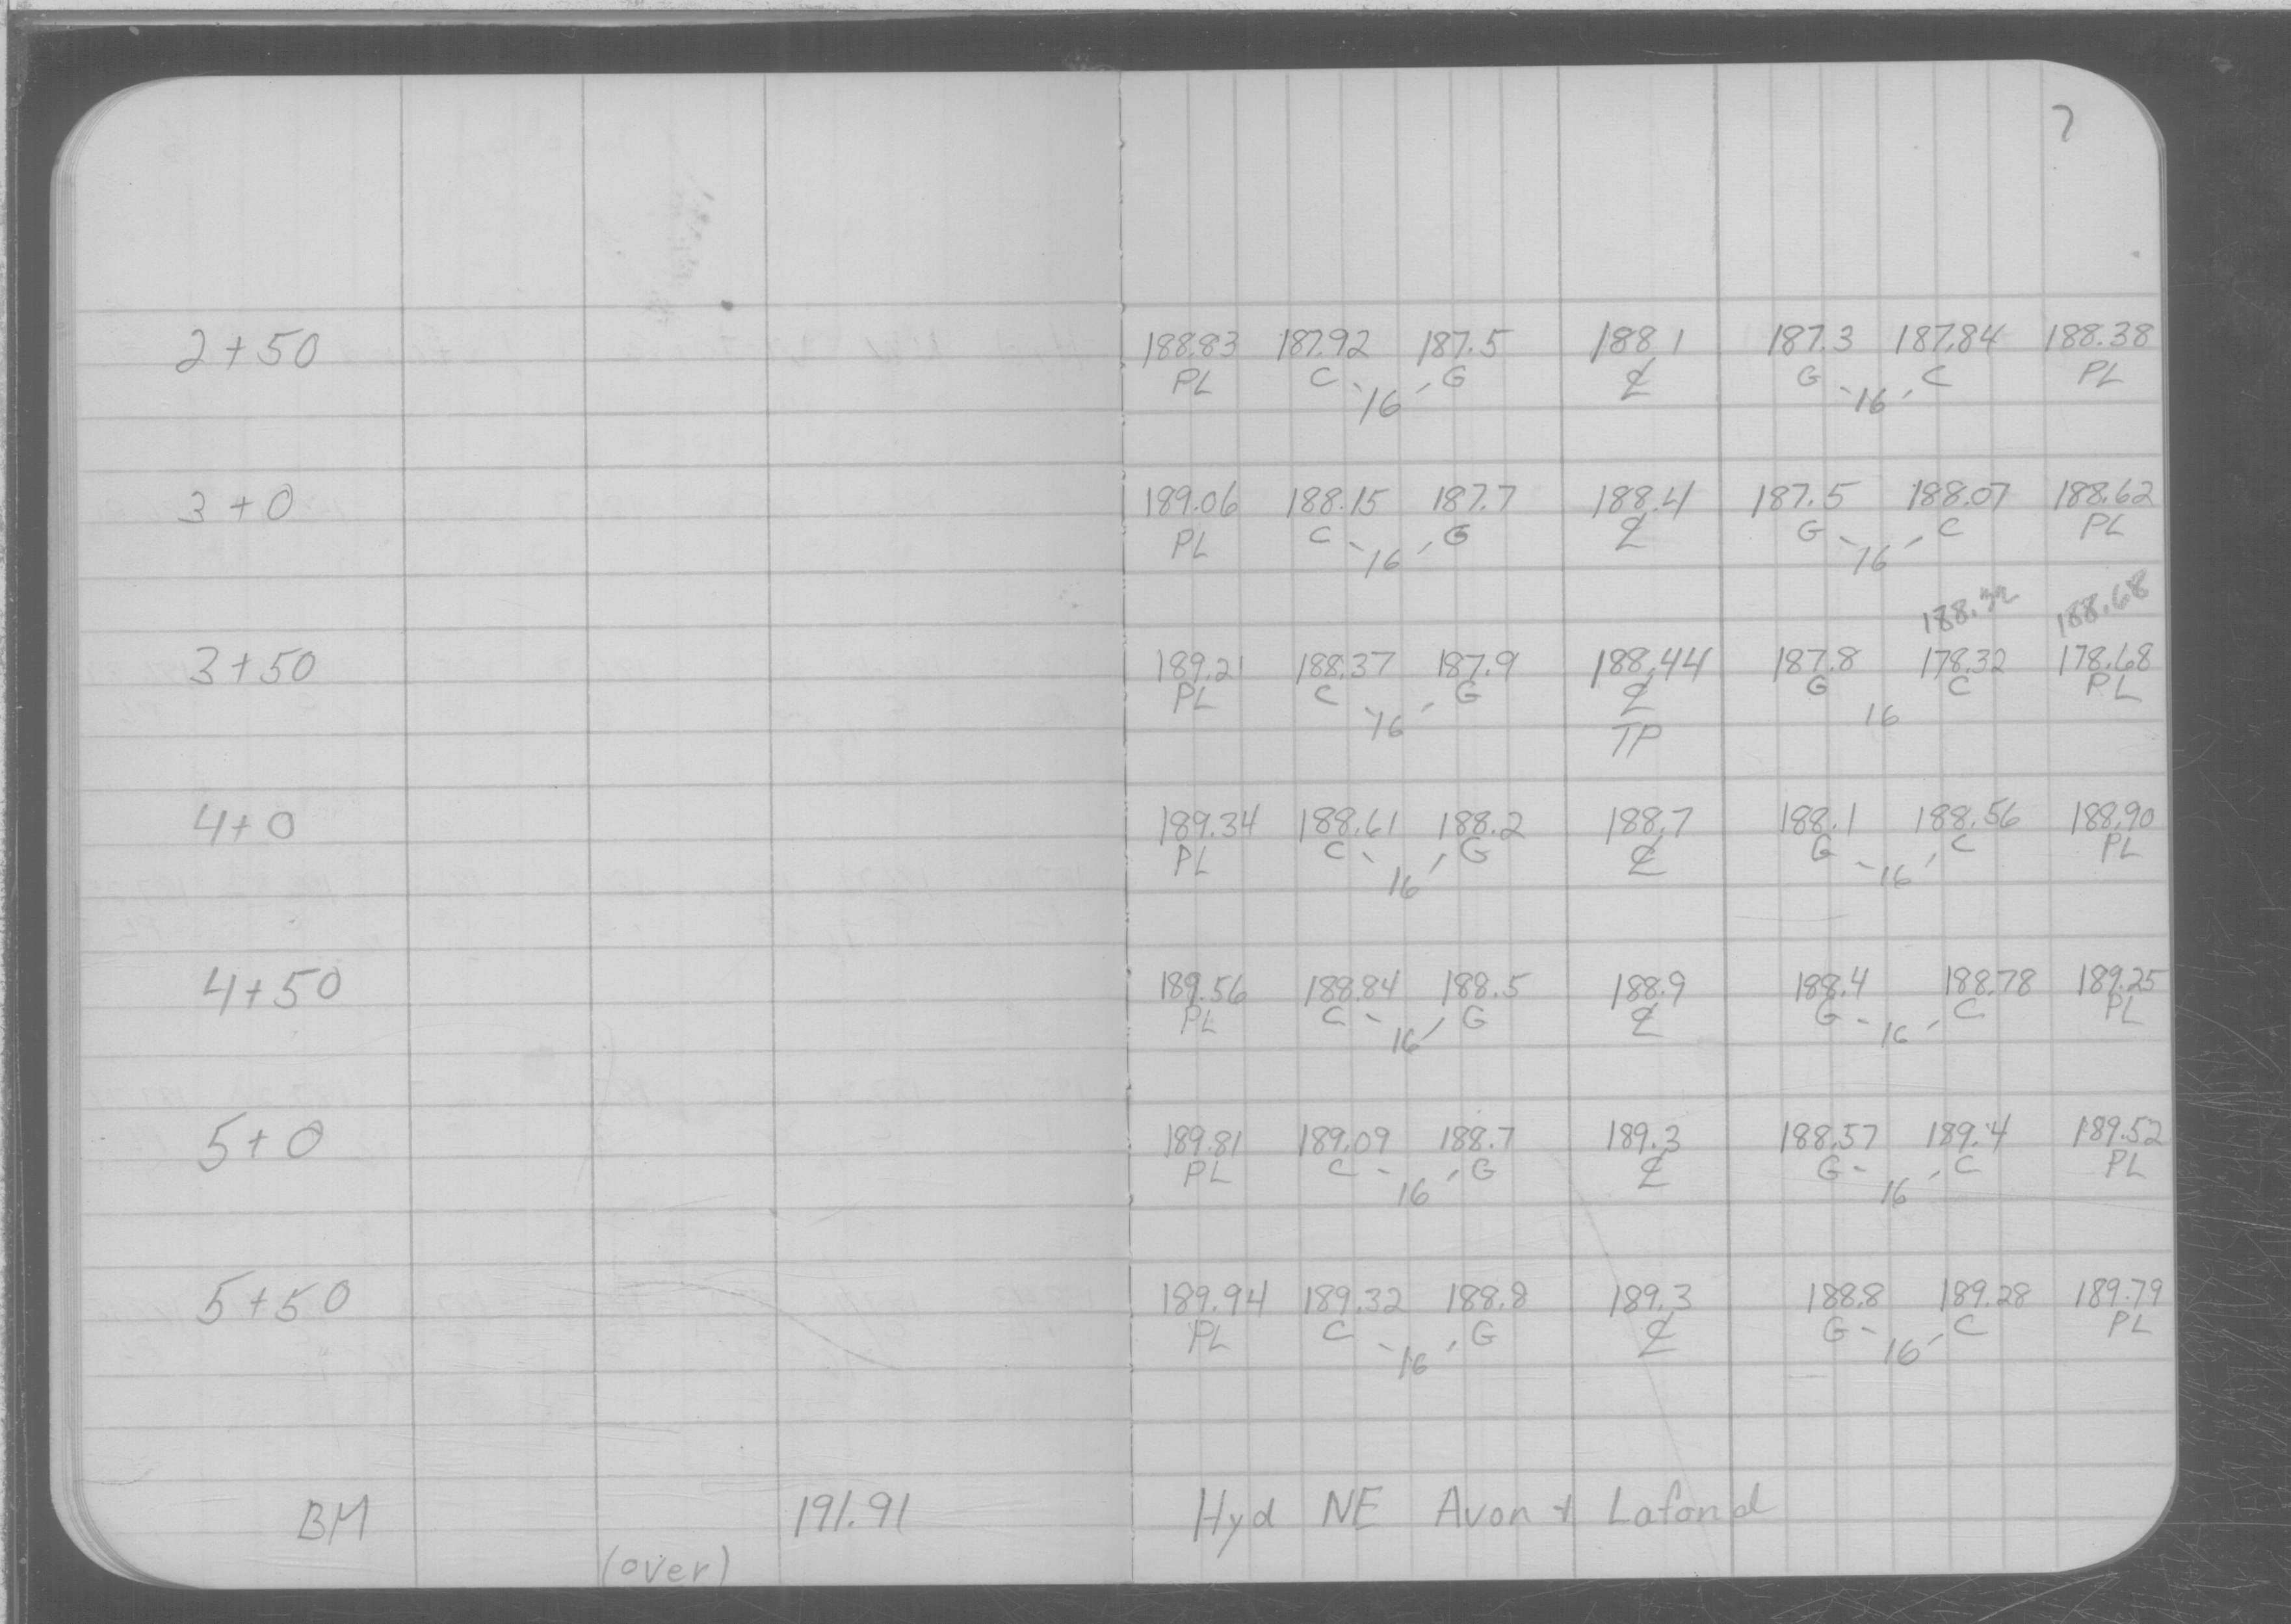 7
2+50 188.83 187.92 187.5 188.1 187.3 187.84 188.38
PL C G ℄ G C PL
16 16
3+0 189.06 188.15 187.7 188.4 187.5 188.07 188.62
PL C G ℄ G C PL
16 16
188.32 188.68
3+50 189.21 188.37 187.9 188.44 187.8 178.32 178.68
PL C G ℄ G C PL
16 TP 16
4+0 189.34 188.61 188.2 188.7 188.1 188.56 188.90
PL C G ℄ G C PL
16 16
4+50 189.56 188.84 188.5 188.9 188.4 188.78 189.25
PL C G ℄ G C PL
16 16
5+0 189.81 189.09 188.7 189.3 188.57 189.4 189.52
PL C G ℄ G C PL
16 16
5+50 189.94 189.32 188.8 189.3 188.8 189.28 189.79
PL C G ℄ G C PL
16 16
BM 191.91 Hyd NE Avon + Lafond
(over)